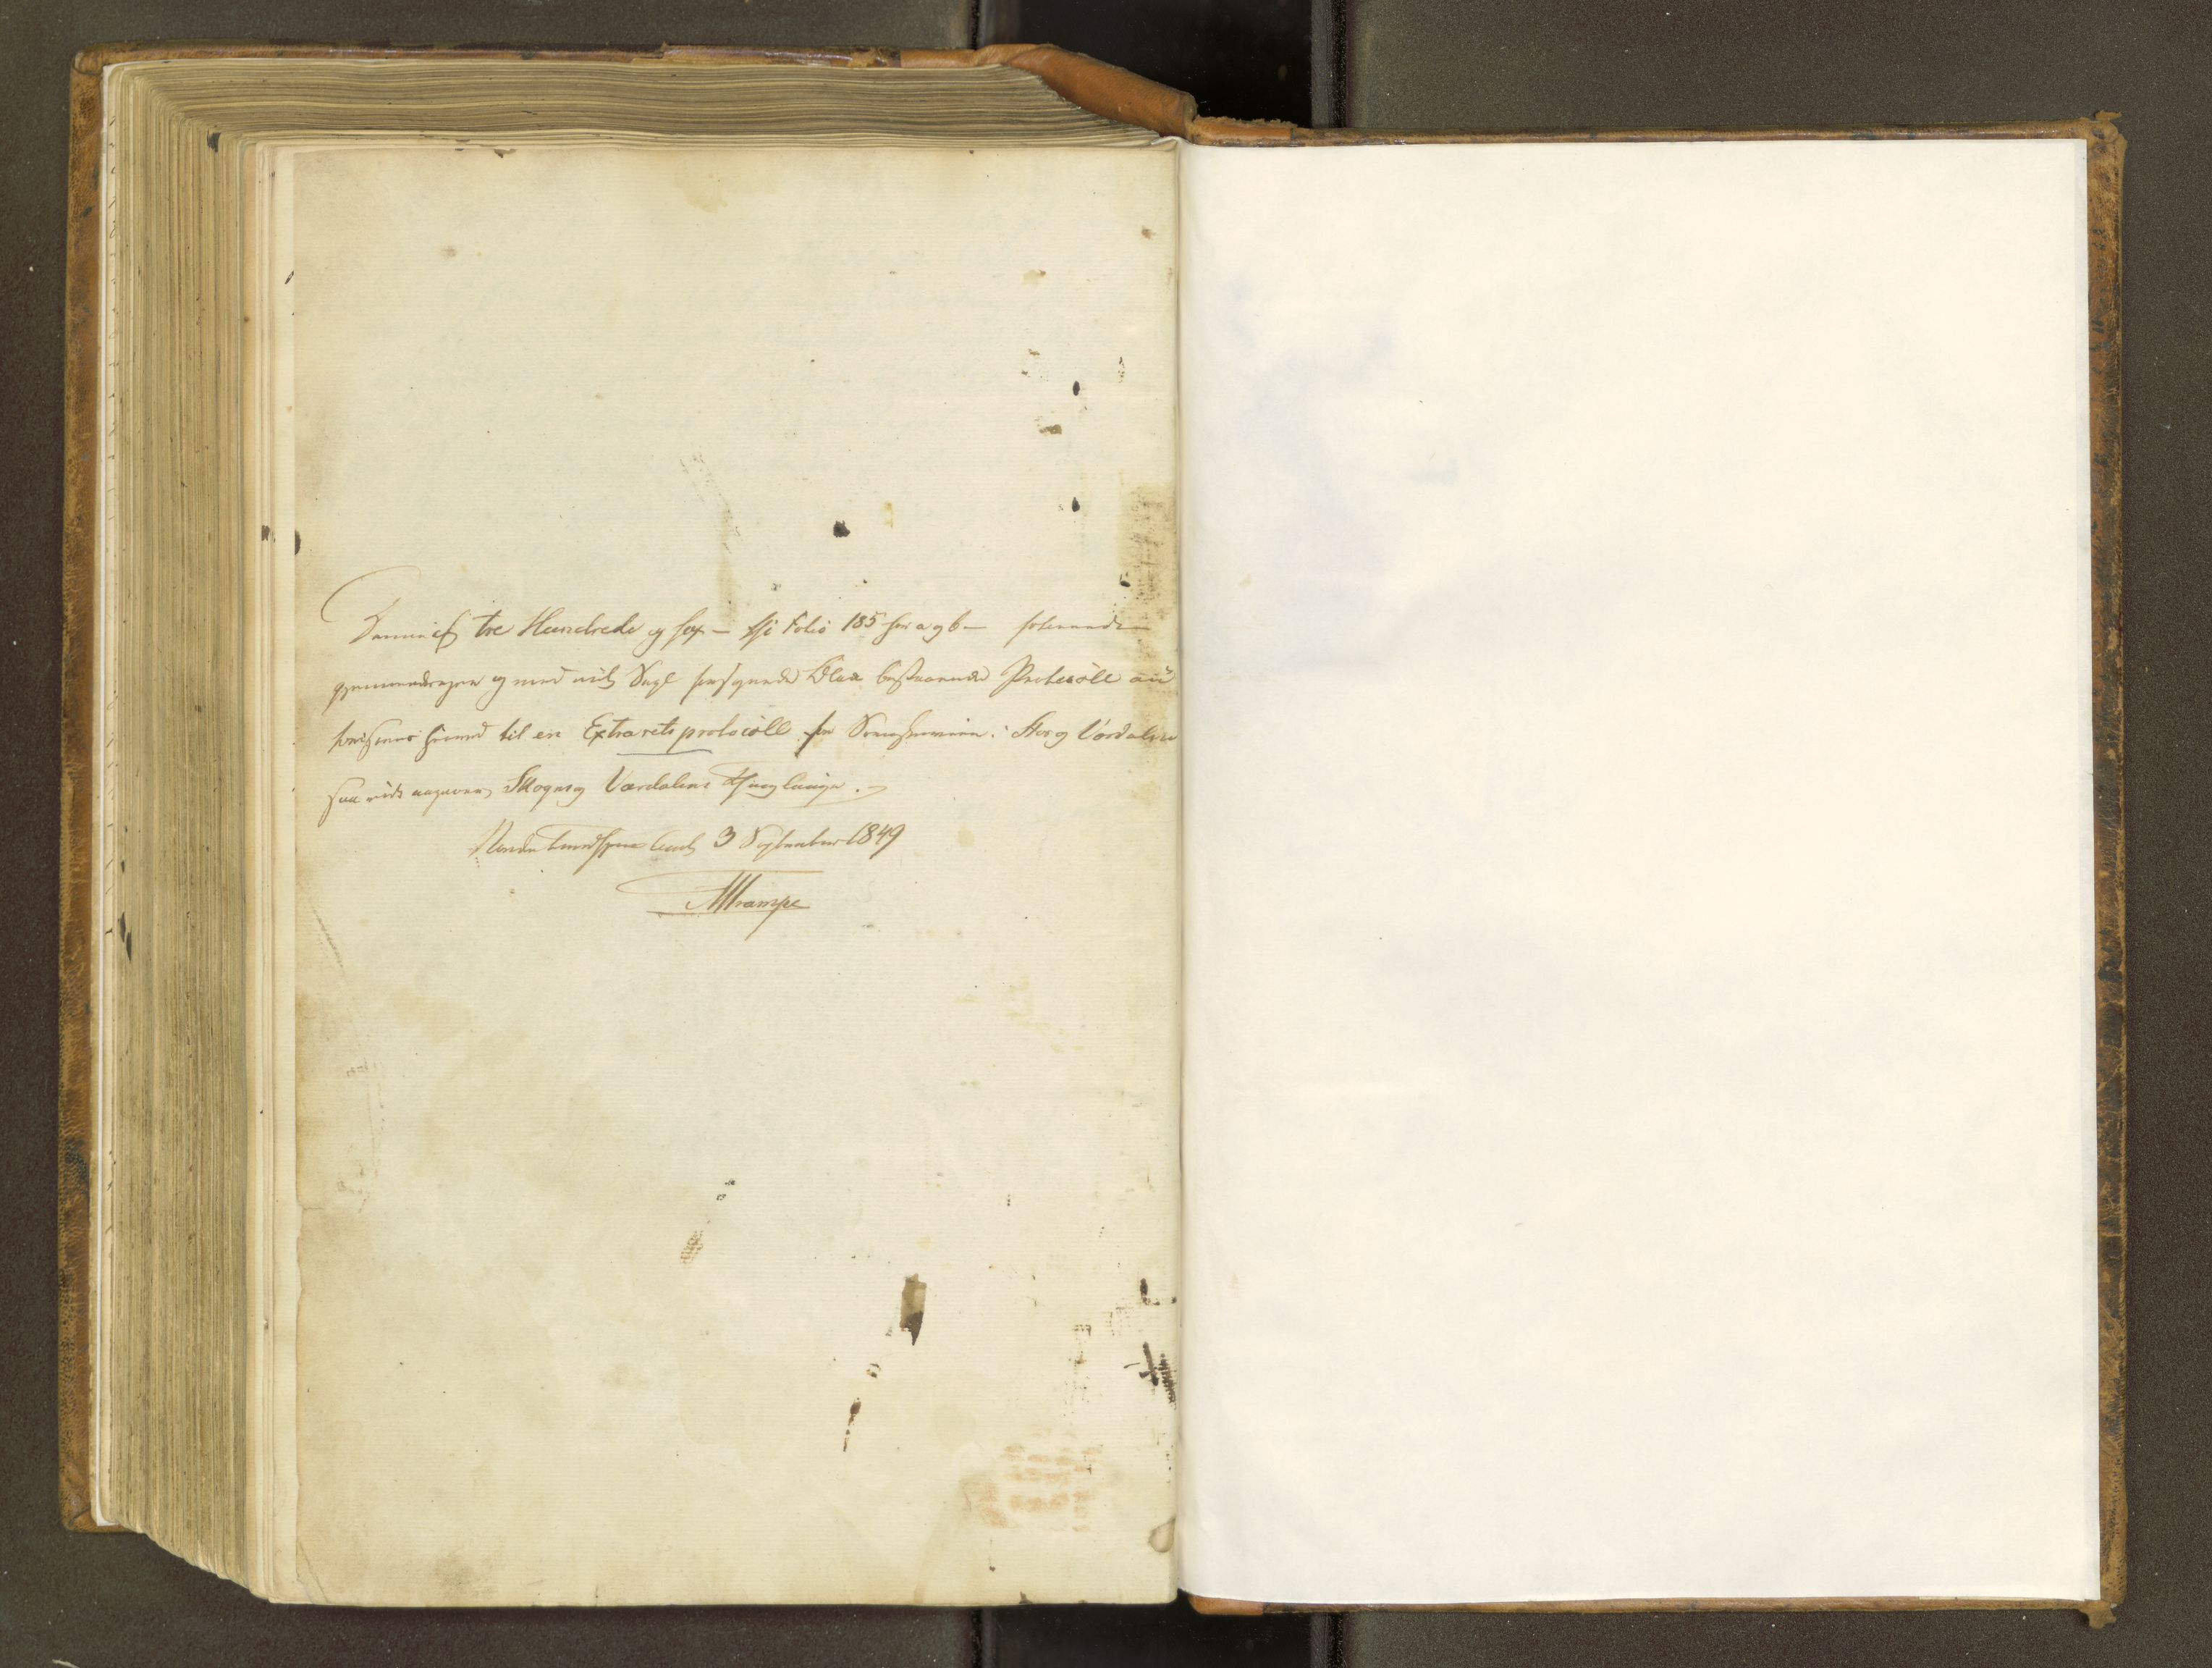 Denne af tre Hundrede og sex – thi Folio 185 har a og b – folierede
gjennemdragne og med mit Segl forsynede Blade bestaaende Protocoll au
toriseres herved til en Extraretsprotocoll for Sorenskriveren i Stør og Værdalen
saa vidt angaaer Skogns og Værdalens Thinglauge.
Nordre Trondhjems Amt 3 September 1849
Trampe